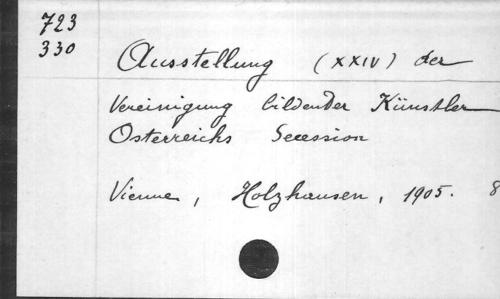 723
330
Ausstellung (XXIV) der
Vereinigung bildender Künstler
Osterreichs Secession
Vienne, Holzhausen, 1905. 8